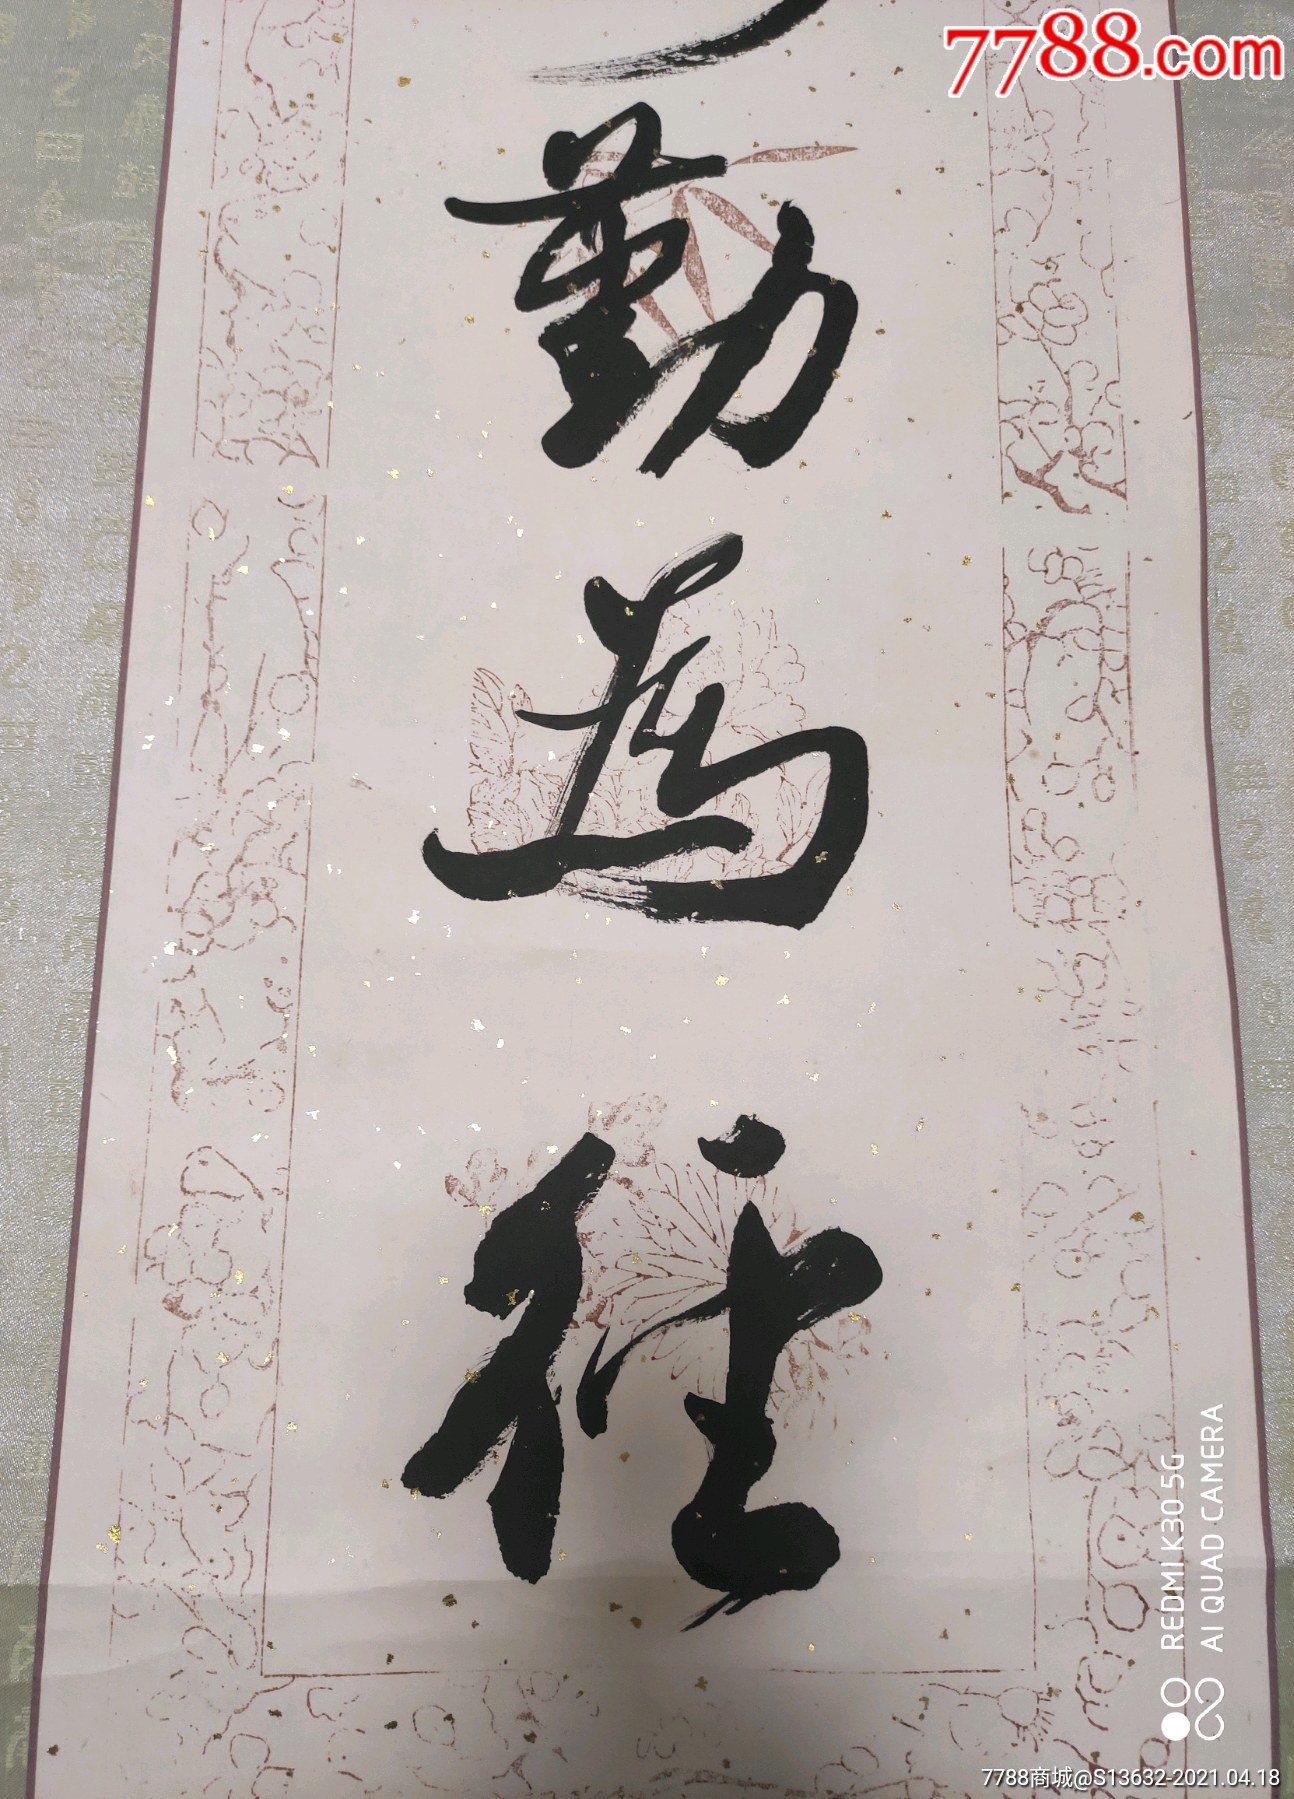 7788.com
勤
為
径
REDMI K30 5G
AI QUAD CAMERA
7788商城@S13632-2021.04.18